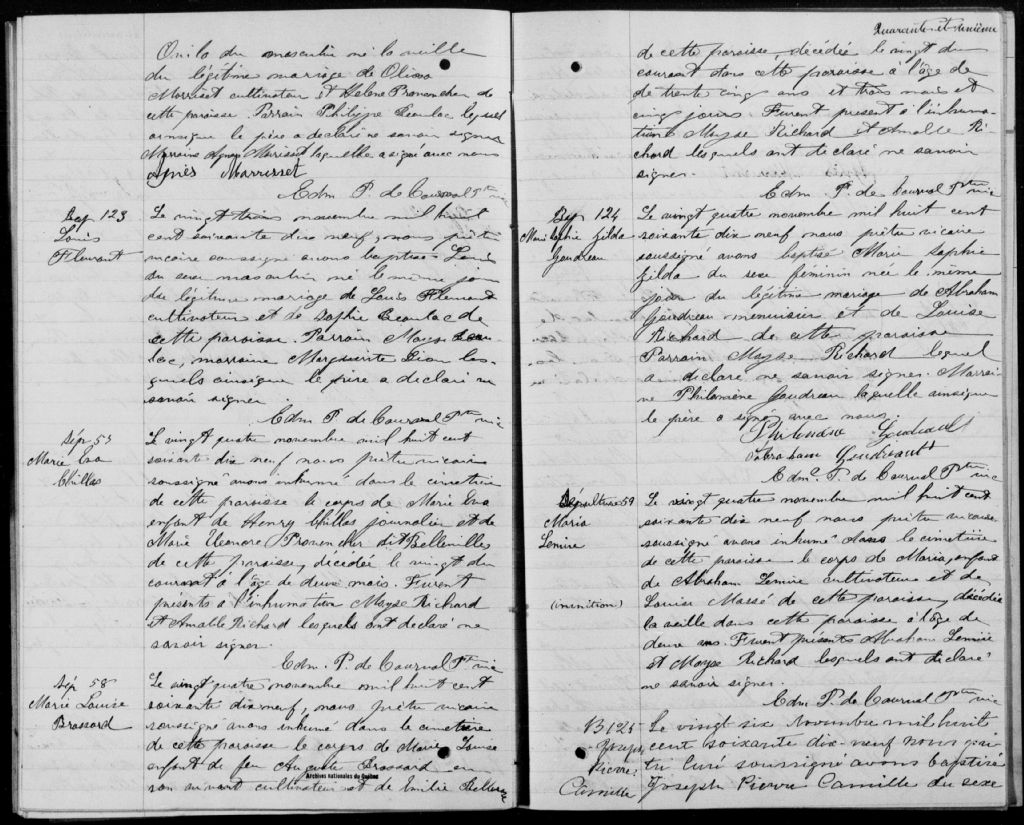 Onila du masculin né la veille
du légitime mariage de Olivier
Morriset cultivateur et Hélène Provencher de
cette paroisse. Parrain Philippe Beaulac lequel
ainsique le père a déclaré ne savoir signer
Marraine Agnes Morisset laquelle a signé avec nous
Agnès Marrisset
Edm P. de Courval Ptre vic
Bap 123
Louis
Fleurant
Le vingt trois novembre mil huit
cent soixante dix neuf, nous prêtre
vicaire soussigné avons baptisé Louis
du sexe masculin né le même jour
du légitime mariage de Louis Fleurant
cultivateur et de Sophie Beaulac de
cette paroisse. Parrain Moyse Beau
lac, marraine Marguerite Lion les-
quels ainsique le père a déclaré ne
savoir signer.
Edm P. de Courval Ptre vic
Sép 57
Marie Eva
Le vingt quatre novembre mil huit cent
soixante dix neuf nous prêtre vicaire
soussigné avons inhumé dans le cimetière
de cette paroisse le corps de Marie Eva
enfant de Henry journalier et de
Marie Eleonore Provencher dit Belleville
de cette paroisse, décédée le vingt du
courant à l'âge de deux mois. Furent
présents a l'inhumation Moyse Richard
et Amable Richard lesquels ont declaré ne
savoir signer.
Edm. P. de Courval Ptre vic
Sép 58
Marie Louise
Brassard
Le vingt quatre novembre mil huit cent
soixante dix neuf, nous prêtre vicaire
soussigné avons inhumé dans le cimetière
de cette paroisse le corps de Marie Louise
enfant de feu Auguste Brassard en
son vivant cultivateur et de Emilie
Archives nationales du Québec
Quarante et unième
de cette paroisse, décédée le vingt du
courant dans cette paroisse a l'âge de
de trente cinq ans et trois mois et
cinq jours. Furent present à l'inhuma-
tion Moyse Richard et Amable Ri-
chard lesquels ont declaré ne savoir
signer.
Edm. P. de Courval Ptre vic
Bap 124
Marie Sophie Gilda
Goudreau
Le vingt quatre novembre mil huit cent
soixante dix neuf nous prêtre vicaire
soussigné avons baptisé Marie Sophie
Gilda du sexe feminin née le même
jour du légitime mariage de Abraham
Goudreau menuisier et de Louise
Richard de cette paroisse
Parrain Moyse Richard lequel
a declaré ne savoir signer. Marrai-
ne Philomène Goudreau laquelle ainsique
le père a signé avec nous.
Goudreault
Abraham Goudreault
Edm. P. de Courval Ptre vic
Sépulture 59
Maria
Lemire
Le vingt quatre novembre mil huit cent
soixante dix neuf nous prêtre vicaire
soussigné avons inhumé dans le cimetière
de cette paroisse le corps de Maria, enfant
de Abraham Lemire cultivateur et de
Louise Massé de cette paroisse, décédée
la veille dans cette paroisse à l'âge de
ans. Furent présents Abraham Lemire
et Moyse Richard lesquels ont declaré
ne savoir signer.
Edm P. de Courval Ptre vic
B 125
Joseph
Pierre
Camille
Le vingt six Novembre mil huit
cent soixante dix-neuf nous prê-
tre curé soussigné avons baptisé
Joseph Pierre Camille du sexe